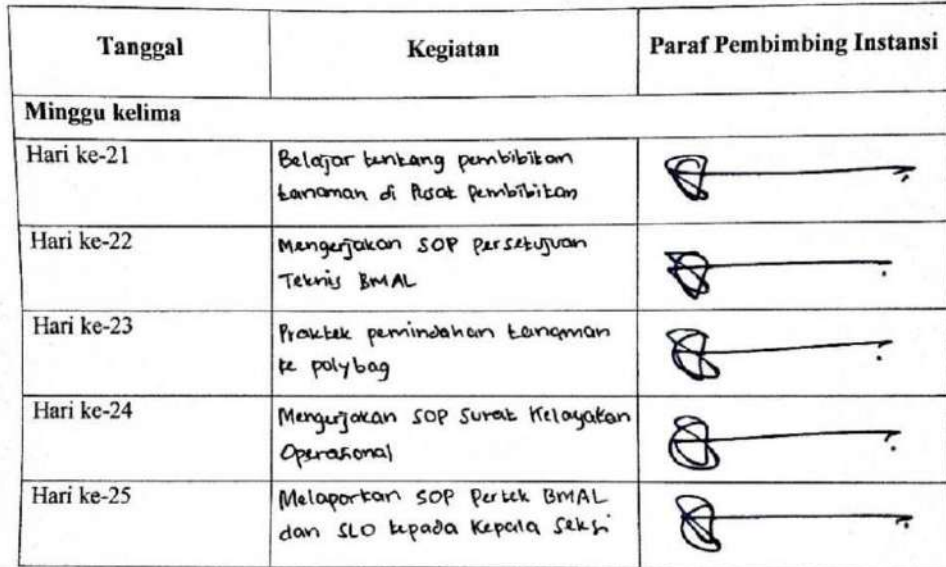 Tanggal Kegiatan Paraf Pembimbing Instansi
Minggu kelima
Hari ke-21 Belajar tentang pembibitan
tanaman di Pusat Pembibitan
Hari ke-22 Mengerjakan SOP Persetujuan
Teknis BMAL
Hari ke-23 Praktek pemindahan tanaman
ke polybag
Hari ke-24 Mengerjakan SOP Surat Kelayakan
Operasional
Hari ke-25 Melaporkan SOP Pertek BMAL
dan SLO kepada Kepala Seksi